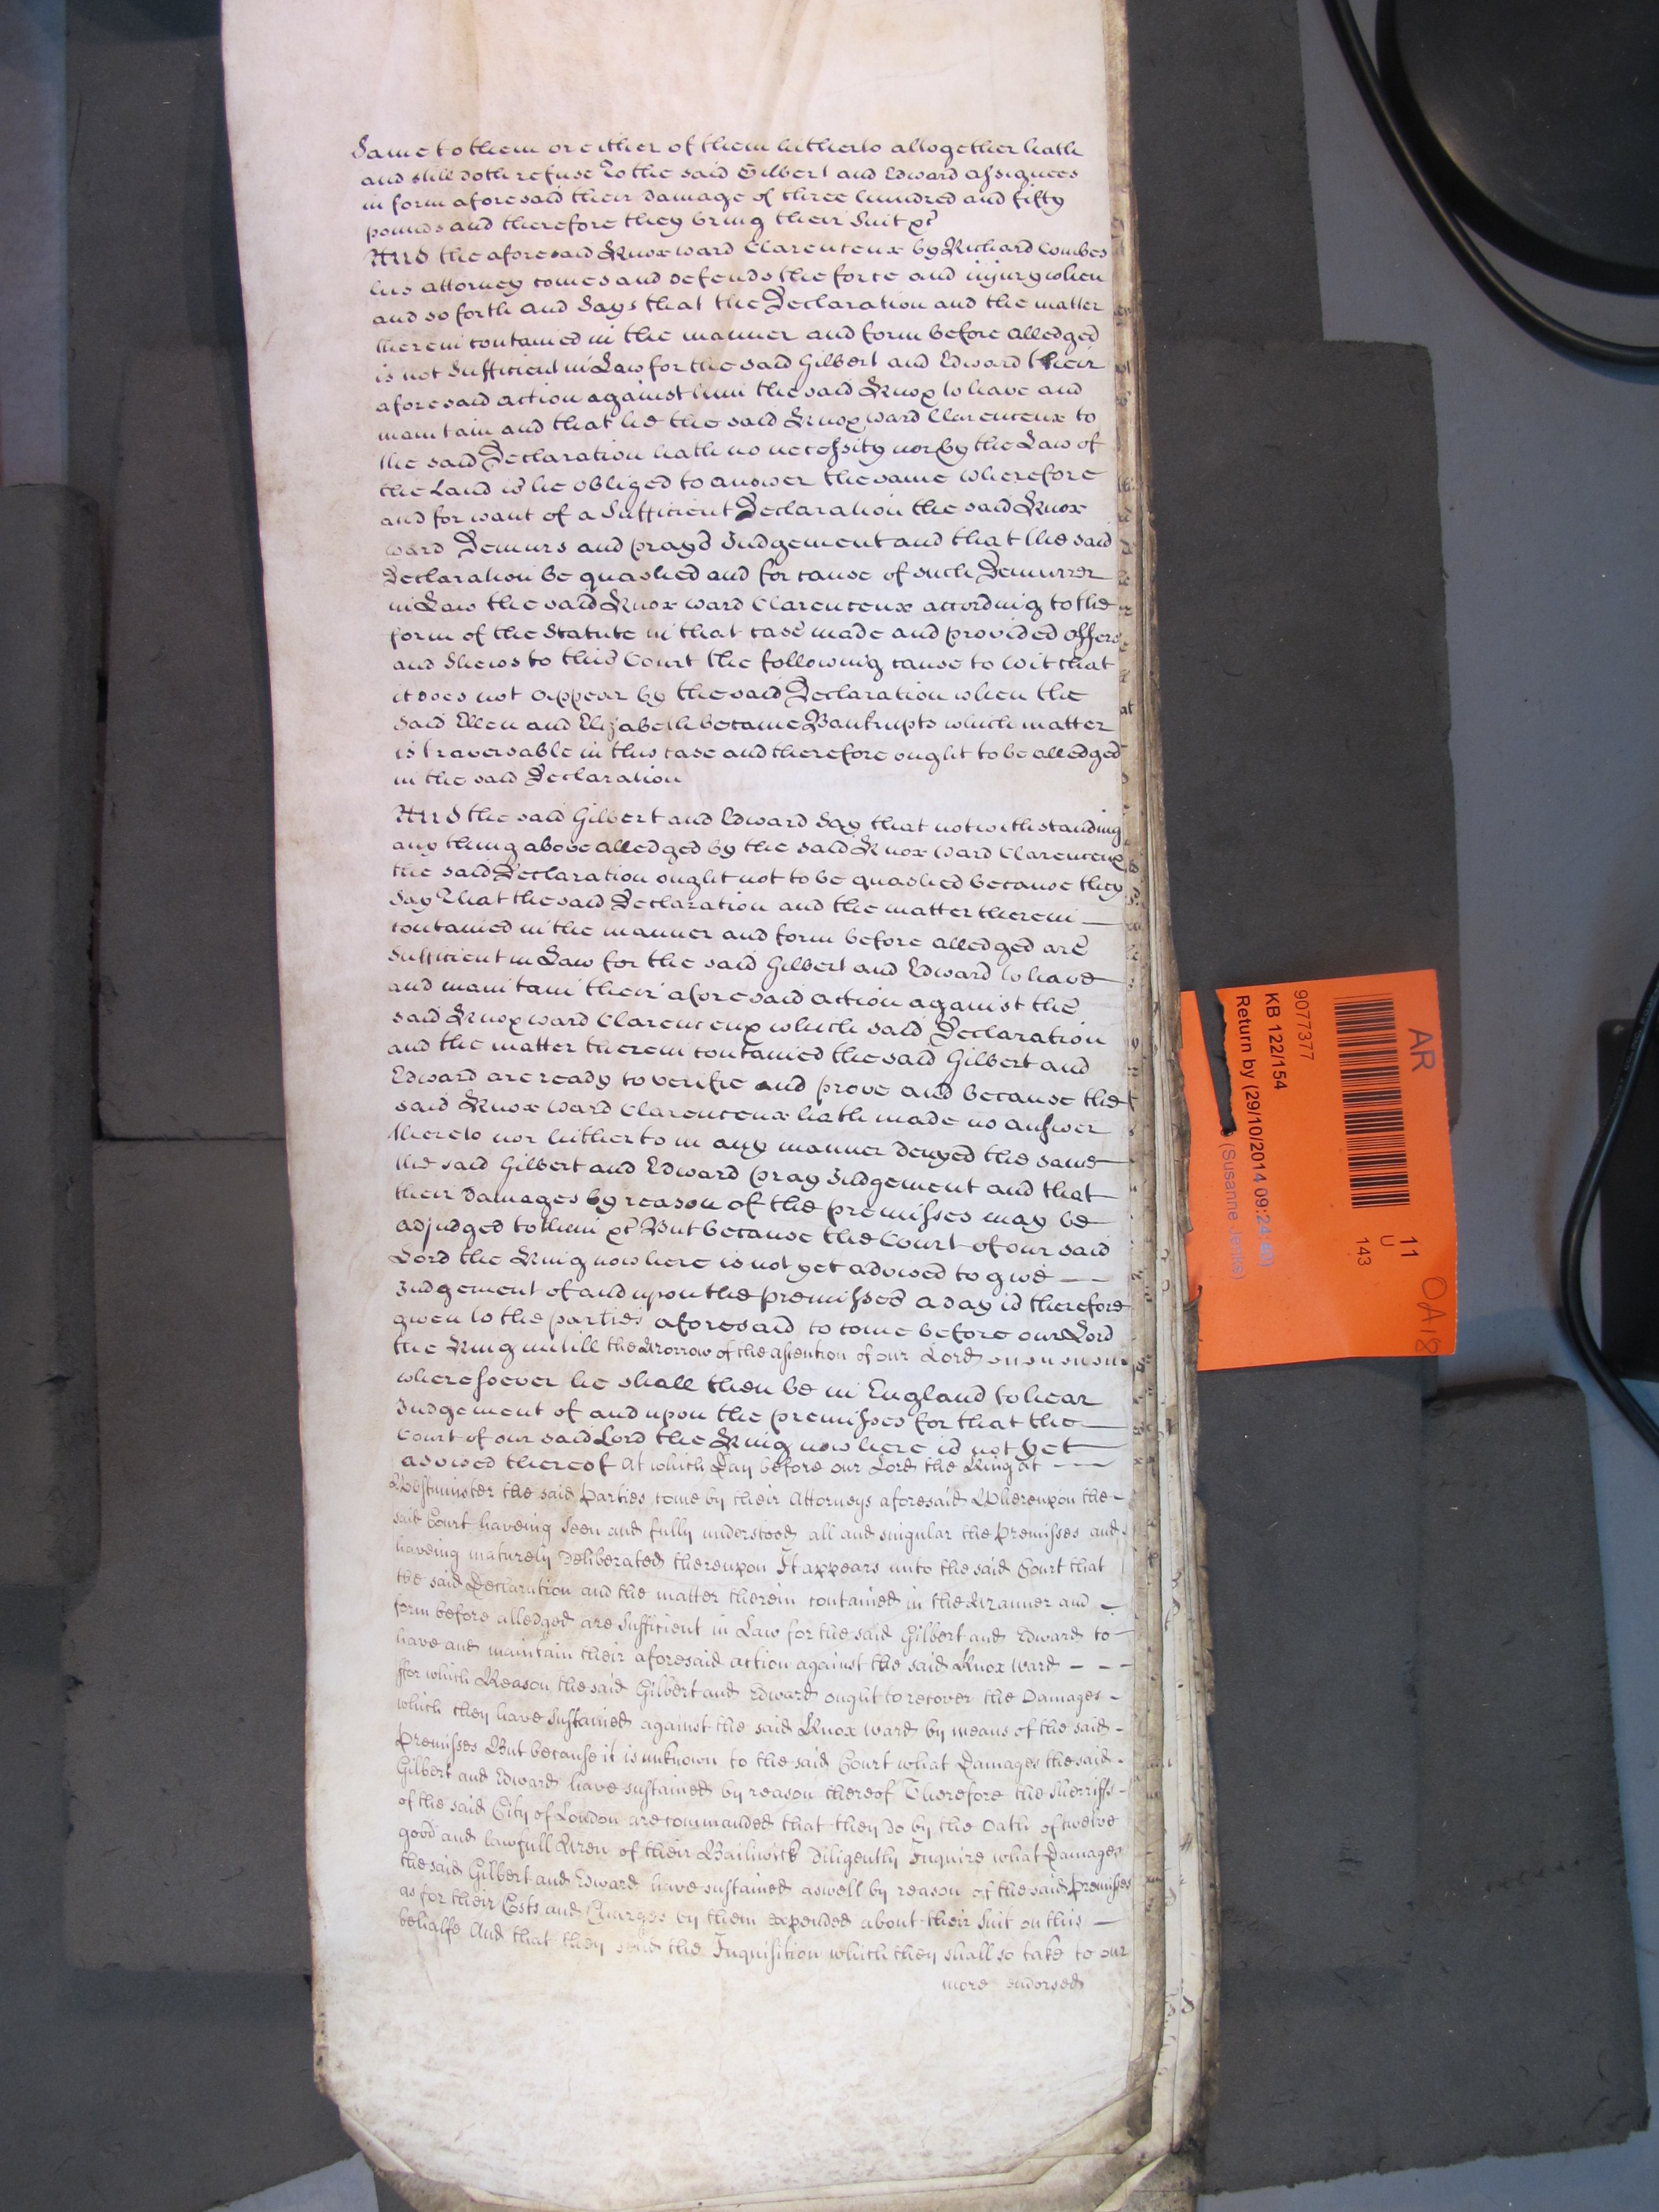 Same to them or either of them hitherto altogether hath
and still doth refuse To the said Gilbert and Edward assignees
in form aforesaid their damage of three hundred and fifty
pounds and therefore they bring their Suit &c
And the aforesaid Knox ward Clarenceux by Richard Combes
his attorney comes and defends the force and injury when
and so forth and Says that the Declaration and the matter
therein contained in the manner and form before alledged
is not Sufficient in Law for the said Gilbert and Edward their
aforesaid action against him the said Knox to have and
maintain and that he the said Knox ward Clarenceux to
the said Declaration hath no necessity nor by the Law of
the Land is he obliged to answer the same wherefore
and for want of a Sufficient Declaration the said Knox
ward Demurs and prays Judgement and that the said
Declaration be quashed and for cause of such Demurrer
in Law the said Knox ward Clarenceux according to the
form of the Statute in that case made and provided offers
and Shews to this Court the following cause to Wit that
it does not appear by the said Declaration when the
said Ellen and Elizabeth became Bankrupts which matter
is traversable in this case and therefore ought to be alledged
in the said Declaration
And the said Gilbert and Edward Say that notwithstanding
any thing above alledged by the said Knox Ward Clarenceux
the said Declaration ought not to be quashed because they
Say That the said Declaration and the matter therein
contained in the manner and form before alledged are
Sufficient in Law for the said Gilbert and Edward to have
and maintain their aforesaid action against the
said Knox ward Clarenceux which said Declaration
and the matter therein contained the said Gilbert and
Edward are ready to verifie and prove and because the
said Knox Ward Clarenceux hath made no answer
thereto nor hitherto in any manner denyed the same
the said Gilbert and Edward pray Judgement and that
their damages by reason of the premisses may be
adjudged to them &c But because the Court of our said
Lord the King now here is not yet advised to give
Judgement of and upon the premisses a day is therefore
given to the parties aforesaid to come before our Lord
the King untill the Morrow of the assention of our Lord
wheresoever he shall then be in England to hear
Judgement of and upon the premisses for that the
Court of our said Lord the King now here is not yet
advised thereof At which Day before our Lord the King at
Westminster the said Parties come by their Attorneys aforesaid Whereupon the
said Court haveing Seen and fully understood all and singular the Premisses and
haveing maturely Deliberated thereupon It appears unto the said Court that
the said Declaration and the matter therein contained in the Manner and
form before alledged are Sufficient in Law for the said Gilbert and Edward to
have and maintain their aforesaid action against the said Knox Ward
ffor which Reason the said Gilbert and Edward ought to recover the Damages
which they have Sustained against the said Knox Ward by means of the said
Premisses But because it is unknown to the said Court what Damages the said
Gilbert and Edward have sustained by reason thereof Therefore the Sherriffs
of the said City of London are commanded that they Do by the Oath of twelve
good and lawfull Men of their Bailiwick Diligently Inquire what Damages
the said Gilbert and Edward have sustained aswell by reason of the said Premisses
as for their Costs and Charges by them expended about their Suit on this
behalfe And that they send the Inquisition which they shall so take to our
more endorsed
AR
11
U
143
OA18
9077377
KB 122/154
Return by (29/10/2014 09:24
(Susanne Jenks)